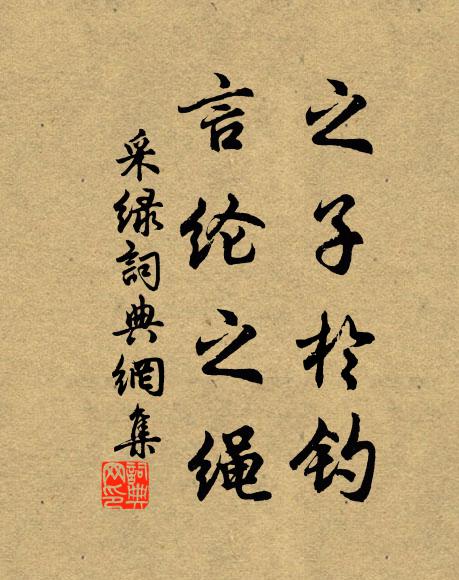 之子於钓
言纶之绳
采绿詞典網集
詞典
网印